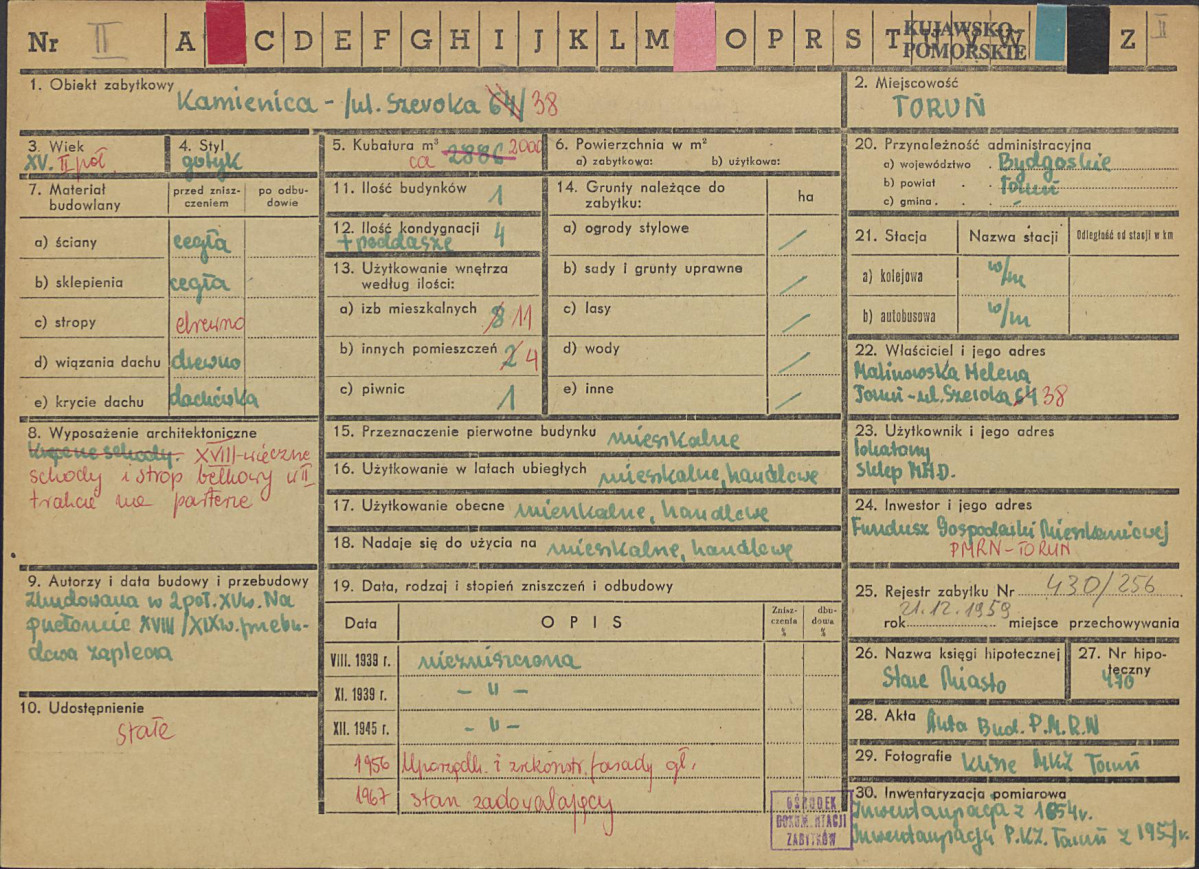 Nr II A C D E F G H I J K L M O P R S T U V W Z II
KUJAWSKO
POMORSKIE
1. Obiekt zabytkowy Kamienica - /ul. Szeroka 64/ 38
2. Miejscowość
TORUŃ
3. Wiek
XV. II poł.
4. Styl
gotyk
5. Kubatura m³ 2000
ca 2886
6. Powierzchnia w m²
a) zabytkowa: b) użytkowa:
7. Materiał budowlany
przed zniszczeniem
po odbudowie
a) ściany cegła
b) sklepienia cegła
c) stropy drewno
d) wiązania dachu drewno
e) krycie dachu dachówka
8. Wyposażenie architektoniczne
Kręcone schody. XVIII-wieczne
schody i strop belkowy w II
trakcie na parterze
9. Autorzy i data budowy i przebudowy
Zbudowana w 2 poł. XV w. Na
przełomie XVIII/XIX w. przebu-
dowa zaplecza
10. Udostępnienie
stałe
11. Ilość budynków 1
12. Ilość kondygnacji 4
+ poddasze
13. Użytkowanie wnętrza
według ilości:
a) izb mieszkalnych 8 11
b) innych pomieszczeń 2 4
c) piwnic 1
14. Grunty należące do
zabytku:
ha
a) ogrody stylowe /
b) sady i grunty uprawne /
c) lasy /
d) wody /
e) inne /
15. Przeznaczenie pierwotne budynku mieszkalne
16. Użytkowanie w latach ubiegłych mieszkalne, handlowe
17. Użytkowanie obecne mieszkalne, handlowe
18. Nadaje się do użycia na mieszkalne, handlowe
19. Data, rodzaj i stopień zniszczeń i odbudowy
Data
OPIS
Zniszczenia %
dbudowa %
VIII. 1939 r. niezniszczona
XI. 1939 r. - " -
XII. 1945 r. - " -
1956 Uporządk. i zrekonstr. fasady gł.
1967 stan zadowalający
20. Przynależność administracyjna
a) województwo . Bydgoskie
b) powiat . . Toruń
c) gmina . . -
21. Stacja
Nazwa stacji
Odległość od stacji w km
a) kolejowa w/m
b) autobusowa w/m
22. Właściciel i jego adres
Malinowska Helena
Toruń - ul. Szeroka 64 38
23. Użytkownik i jego adres
lokatorzy
Sklep MHD.
24. Inwestor i jego adres
Fundusz Gospodarki Mieszkaniowej
PMRN - TORUŃ
25. Rejestr zabytku Nr 430/256
21.12.1959
rok miejsce przechowywania
26. Nazwa księgi hipotecznej
Stare Miasto
27. Nr hipoteczny
470
28. Akta Akta Bud. P.M.R.N
29. Fotografie Klisze MKZ Toruń
30. Inwentaryzacja pomiarowa
Inwentaryzacja z 1954 r.
Inwentaryzacja P.K.Z. Toruń z 1957 r.
OŚRODEK
DOKUMENTACJI
ZABYTKÓW